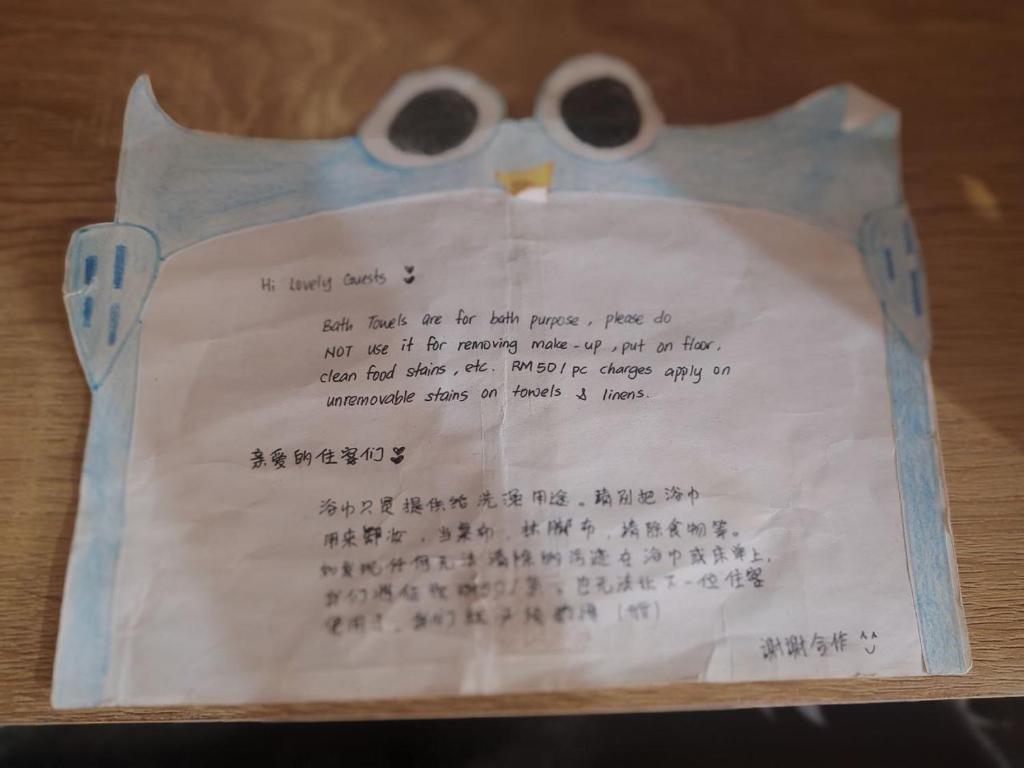 Hi Lovely Guests
Bath Towels are for bath purpose, please do
NOT use it for removing make-up, put on floor,
clean food stains, etc. RM50/pc charges apply on
unremovable stains on towels & linens.
亲爱的住客们
浴巾只是提供给洗澡用途。请别把浴巾
用来卸妆，当桌布，抹脚布，清除食物等。
如发现任何无法清除的污迹在浴巾或床单上，
我们将征收 也无法让下一位住客
使用了。我们
谢谢合作